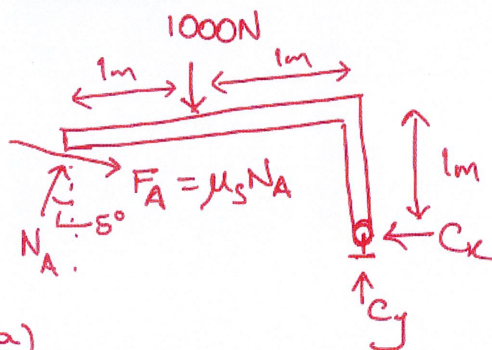 1000N
1m 1m
F_A = μ_s N_A
5°
N_A
1m
C_x
C_y
a)